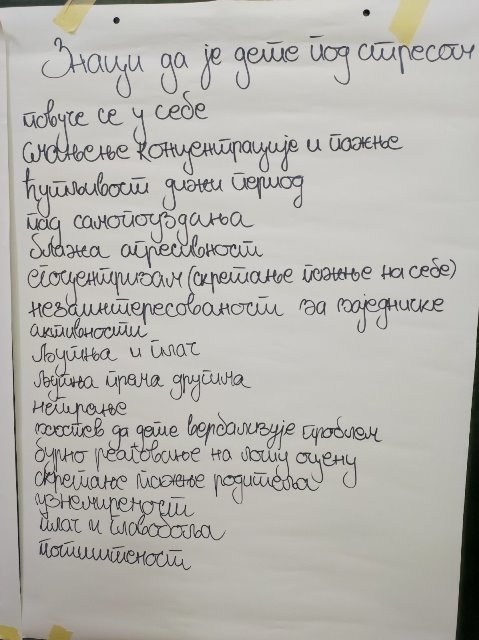 Знаци да је дете под стресом
повуче се у себе
смањење концентрације и пажње
ћутљивост дужи период
пад самопоуздања
блажа агресивност
егоцентризам (скретање пажње на себе)
незаинтересованост за заједничке
активности
љутња и плач
љутња према другима
неиграње
захтев да дете вербализује проблем
бурно реаговање на лошу оцену
скретање пажње родитеља
узнемиреност
плач и главобоља
потиштеност